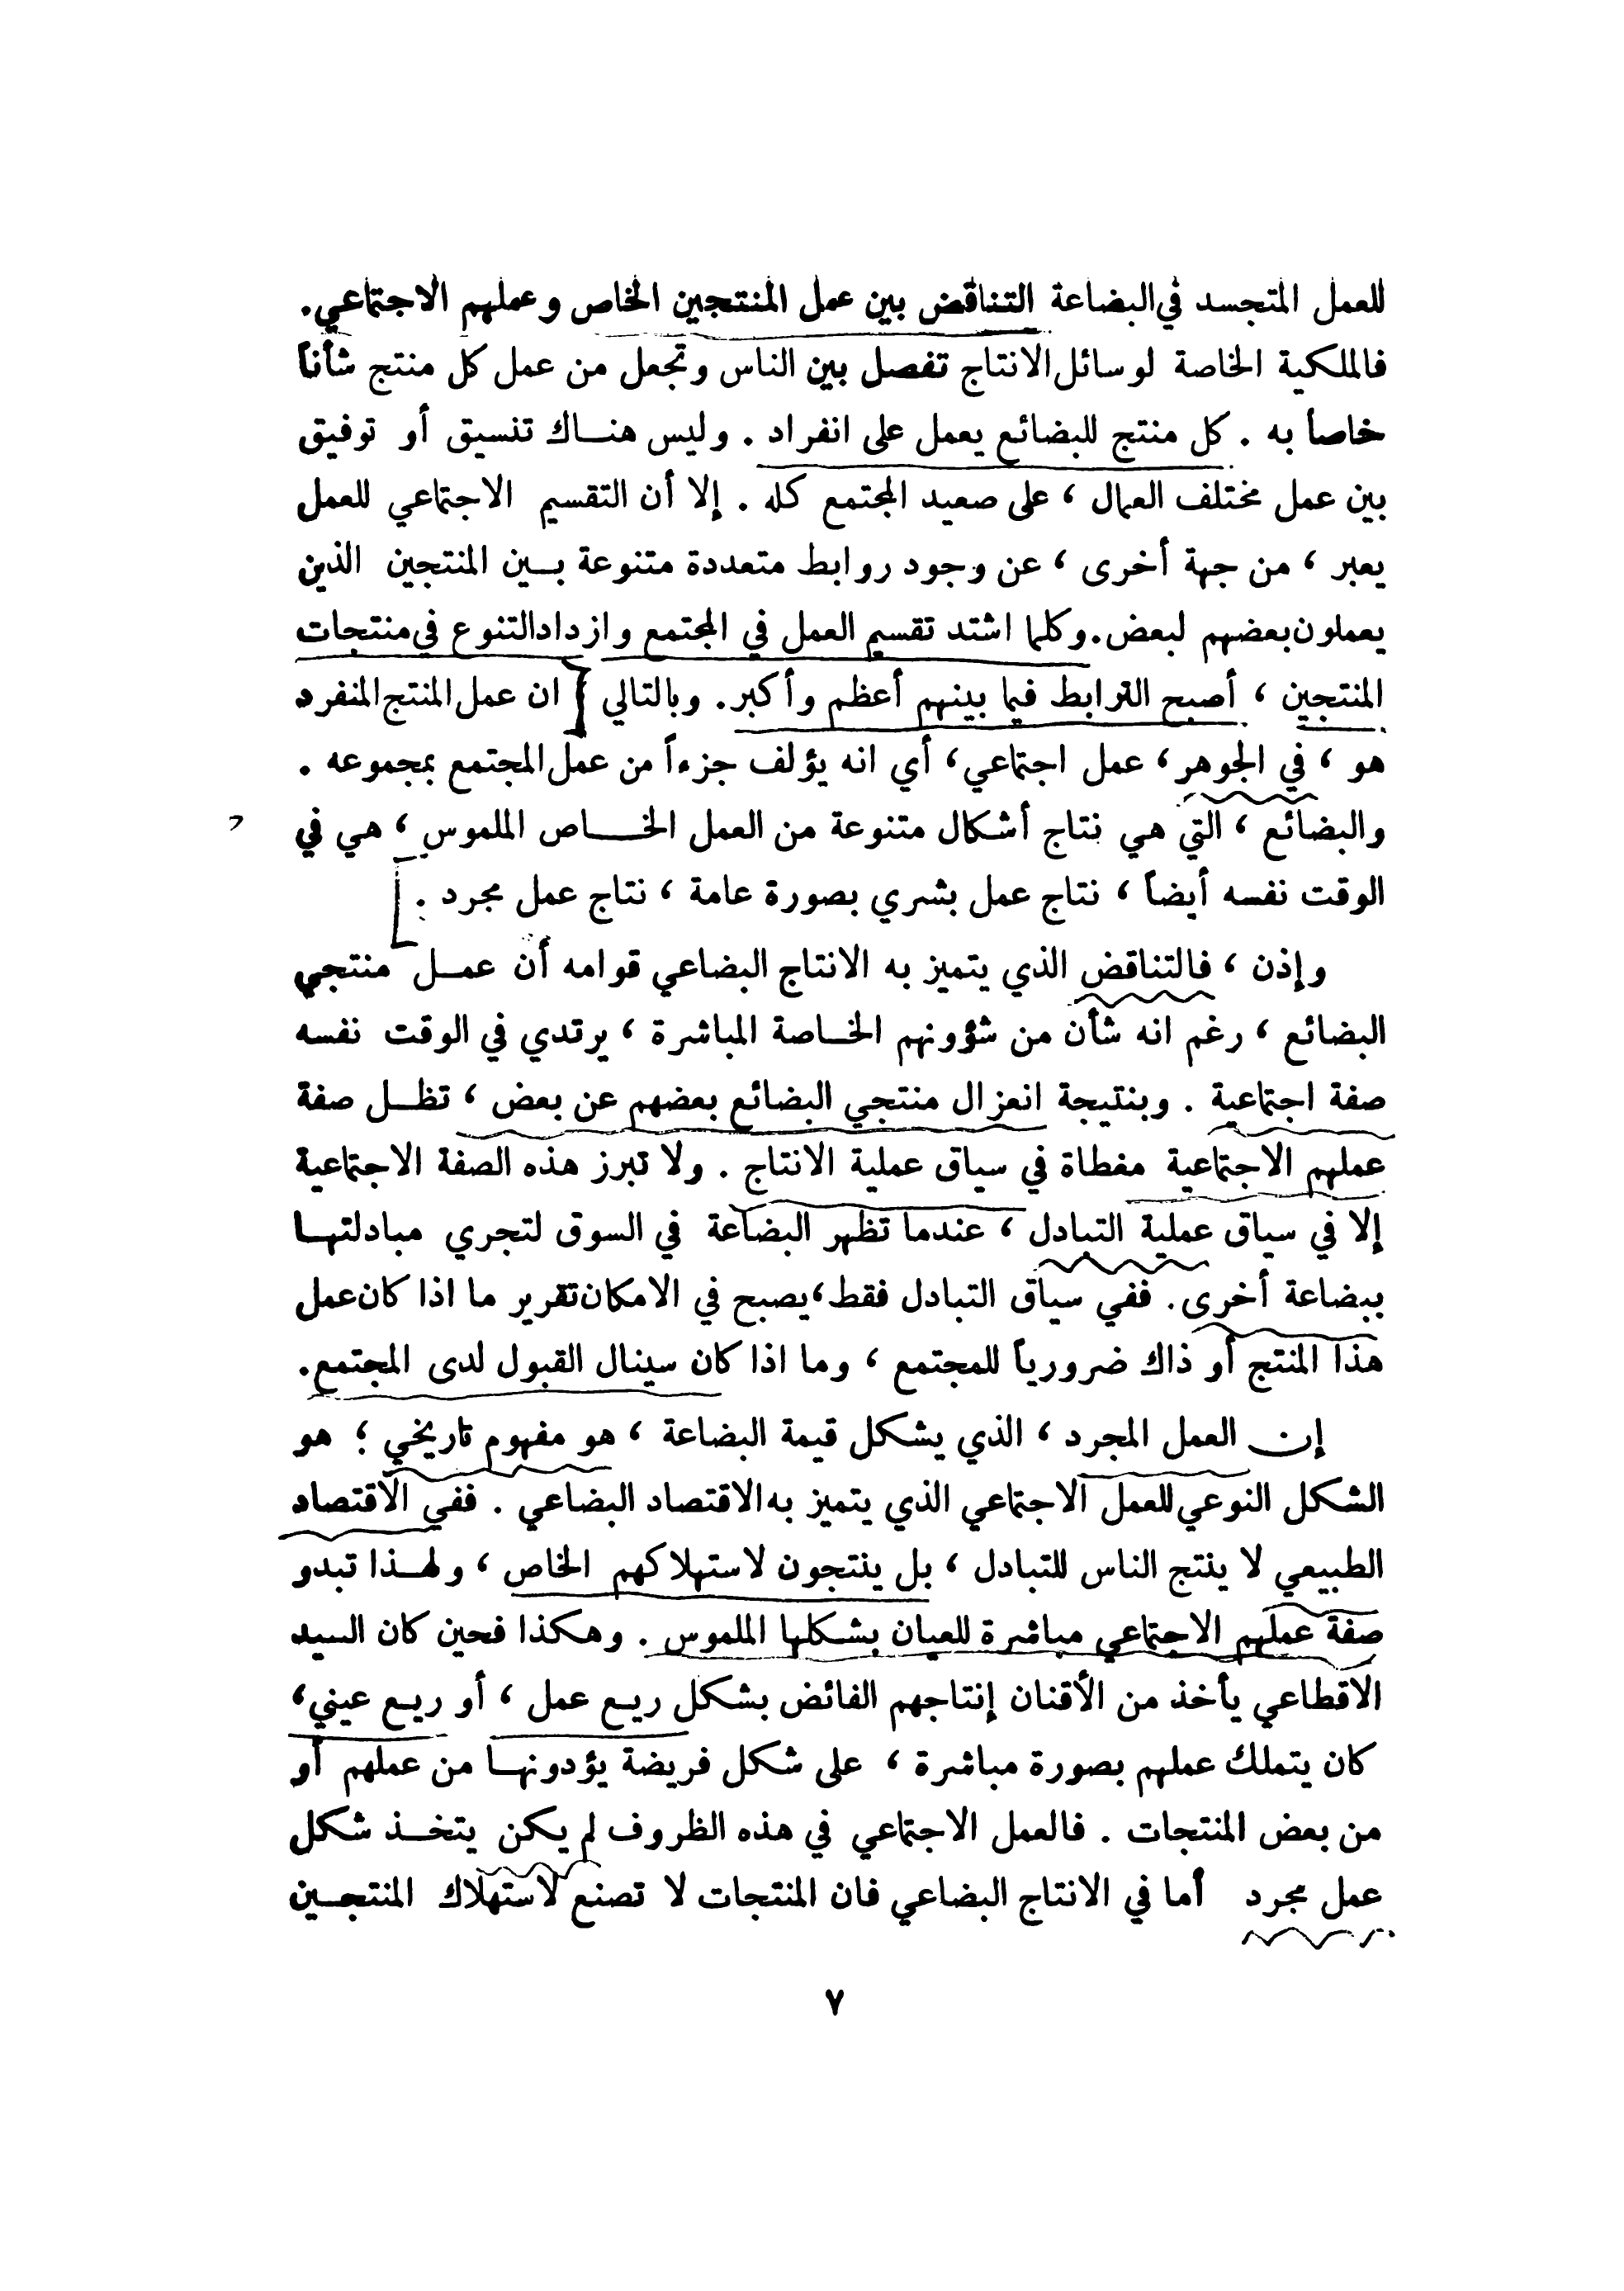 للعمل المتجسد في البضاعة التناقض بين عمل المنتجين الخاص وعملهم الاجتماعي.
فالملكية الخاصة لوسائل الانتاج تفصل بين الناس وتجعل من عمل كل منتج شأناً
خاصاً به . كل منتج للبضائع يعمل على انفراد . وليس هنـاك تنسيق أو توفيق
بين عمل مختلف العمال ، على صعيد المجتمع كله . إلا أن التقسيم الاجتماعي للعمل
يعبر ، من جهة أخرى ، عن وجود روابط متعددة متنوعة بـين المنتجين الذين
يعملون بعضهم لبعض. وكلما اشتد تقسيم العمل في المجتمع وازداد التنوع في منتجات
المنتجين ، أصبح الترابط فيما بينهم أعظم وأكبر. وبالتالي [ ان عمل المنتج المنفرد
هو ، في الجوهر ، عمل اجتماعي ، أي انه يؤلف جزءاً من عمل المجتمع بمجموعه .
والبضائع ، التي هي نتاج أشكال متنوعة من العمل الخـاص الملموس ، هي في
الوقت نفسه أيضاً ، نتاج عمل بشري بصورة عامة ، نتاج عمل مجرد . ]
وإذن ، فالتناقض الذي يتميز به الانتاج البضاعي قوامه أن عمـل منتجي
البضائع ، رغم انه شأن من شؤونهم الخـاصة المباشرة ، يرتدي في الوقت نفسه
صفة اجتماعية . وبنتيجة انعزال منتجي البضائع بعضهم عن بعض ، تظـل صفة
عملهم الاجتماعية مغطاة في سياق عملية الانتاج . ولا تبرز هذه الصفة الاجتماعية
إلا في سياق عملية التبادل ، عندما تظهر البضاعة في السوق لتجري مبادلتهـا
ببضاعة أخرى . ففي سياق التبادل فقط ، يصبح في الامكان تقرير ما اذا كان عمل
هذا المنتج أو ذاك ضرورياً للمجتمع ، وما اذا كان سينال القبول لدى المجتمع.
إن العمل المجرد ، الذي يشكل قيمة البضاعة ، هو مفهوم تاريخي ؛ هو
الشكل النوعي للعمل الاجتماعي الذي يتميز به الاقتصاد البضاعي . ففي الاقتصاد
الطبيعي لا ينتج الناس للتبادل ، بل ينتجون لاستهلاكهم الخاص ، ولهـذا تبدو
صفة عملهم الاجتماعي مباشرة للعيان بشكلها الملموس . وهكذا فحين كان السيد
الاقطاعي يأخذ من الأقنان إنتاجهم الفائض بشكل ريـع عمل ، أو ريـع عيني ،
كان يتملك عملهم بصورة مباشرة ، على شكل فريضة يؤدونهـا من عملهم أو
من بعض المنتجات . فالعمل الاجتماعي في هذه الظروف لم يكن يتخـذ شكل
عمل مجرد أما في الانتاج البضاعي فان المنتجات لا تصنع لاستهلاك المنتجـين
٧